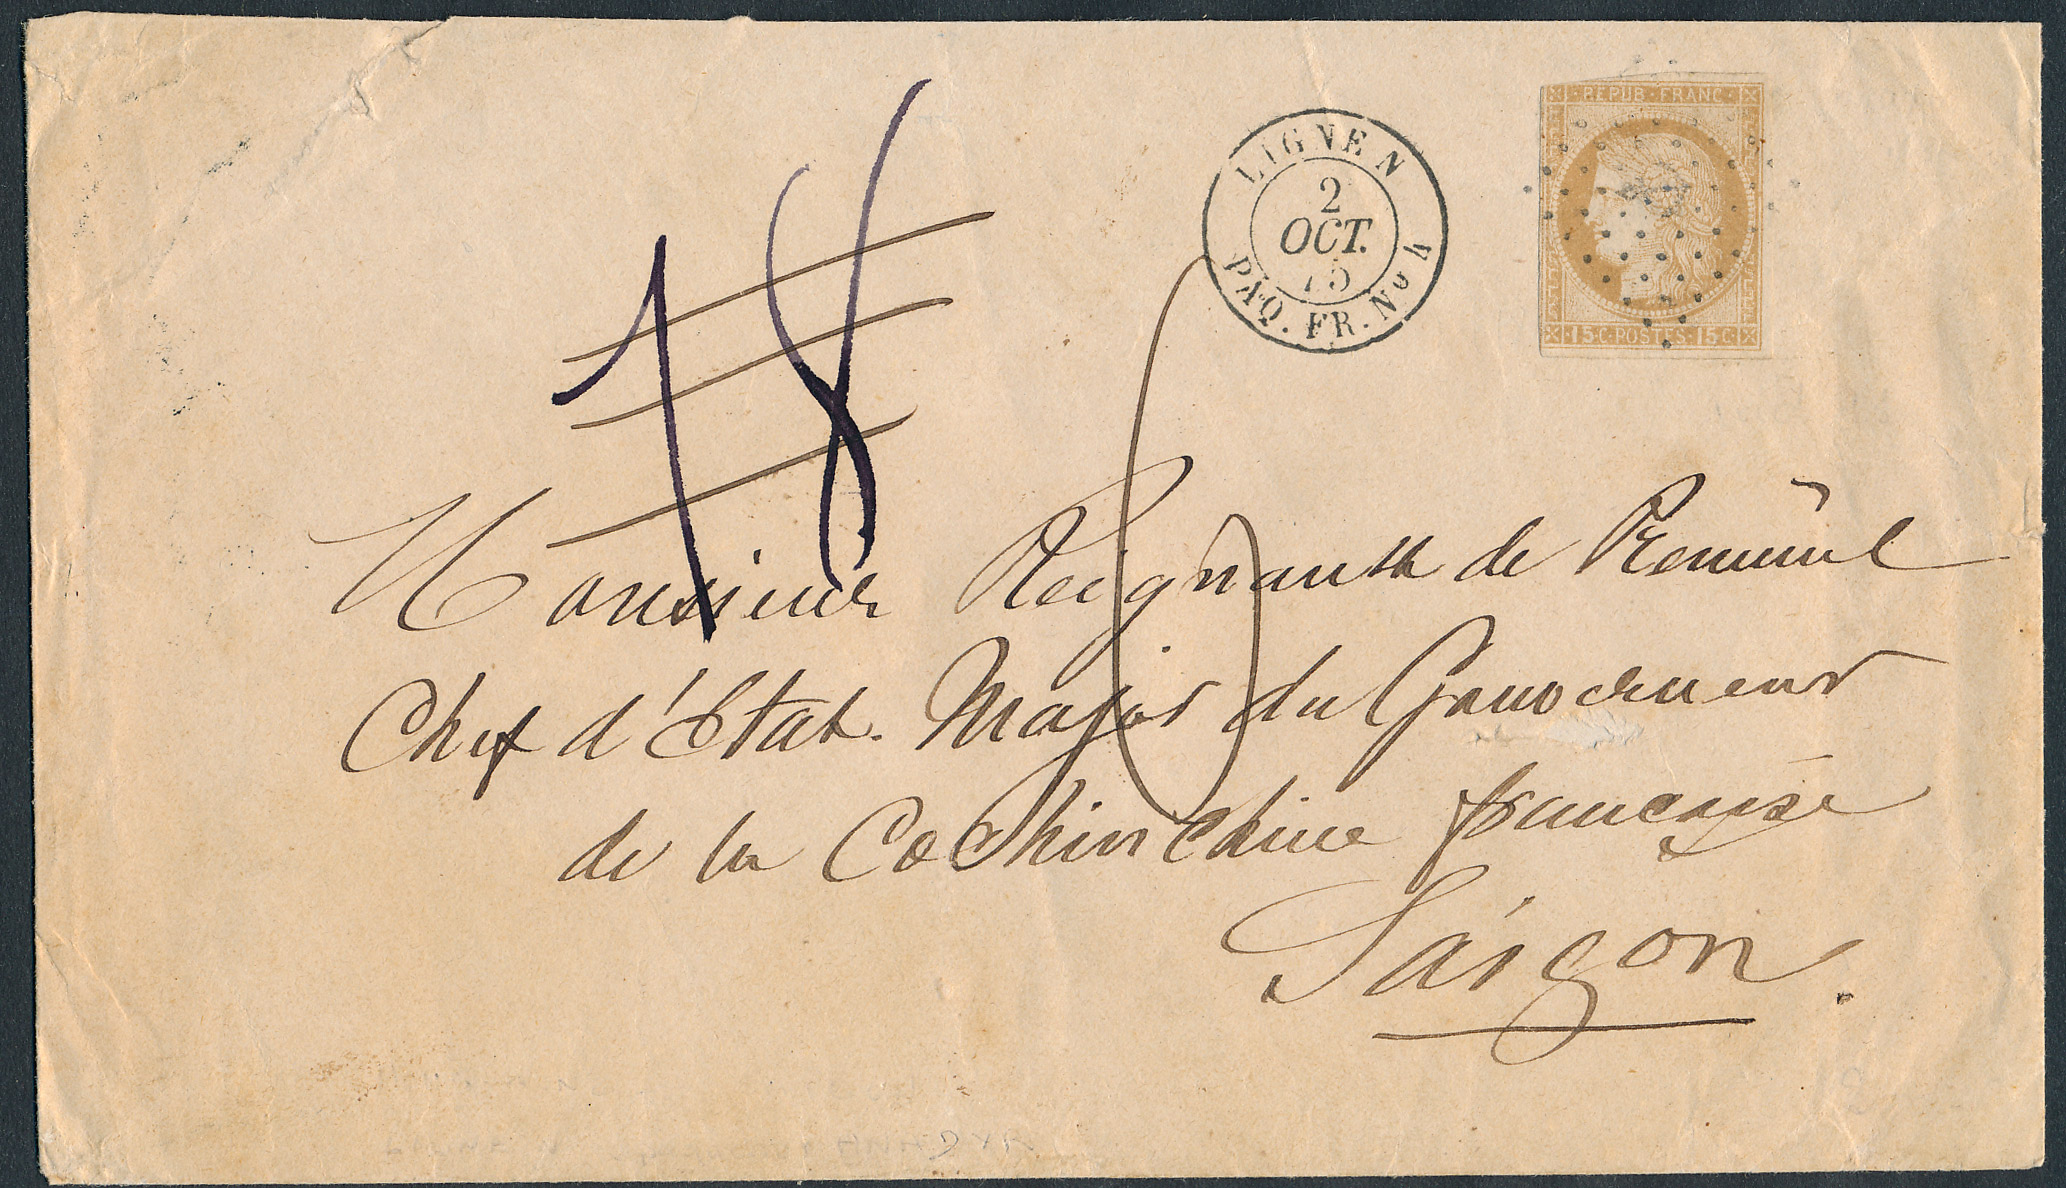 18
LIGNE N
2
OCT.
75
PAQ. FR. No 4
REPUB · FRANC
15 C · POSTES · 15 C
Monsieur Reignault de Premesnil
Chef d'Etat. Major du Gouverneur
de la Cochinchine française
Saigon.